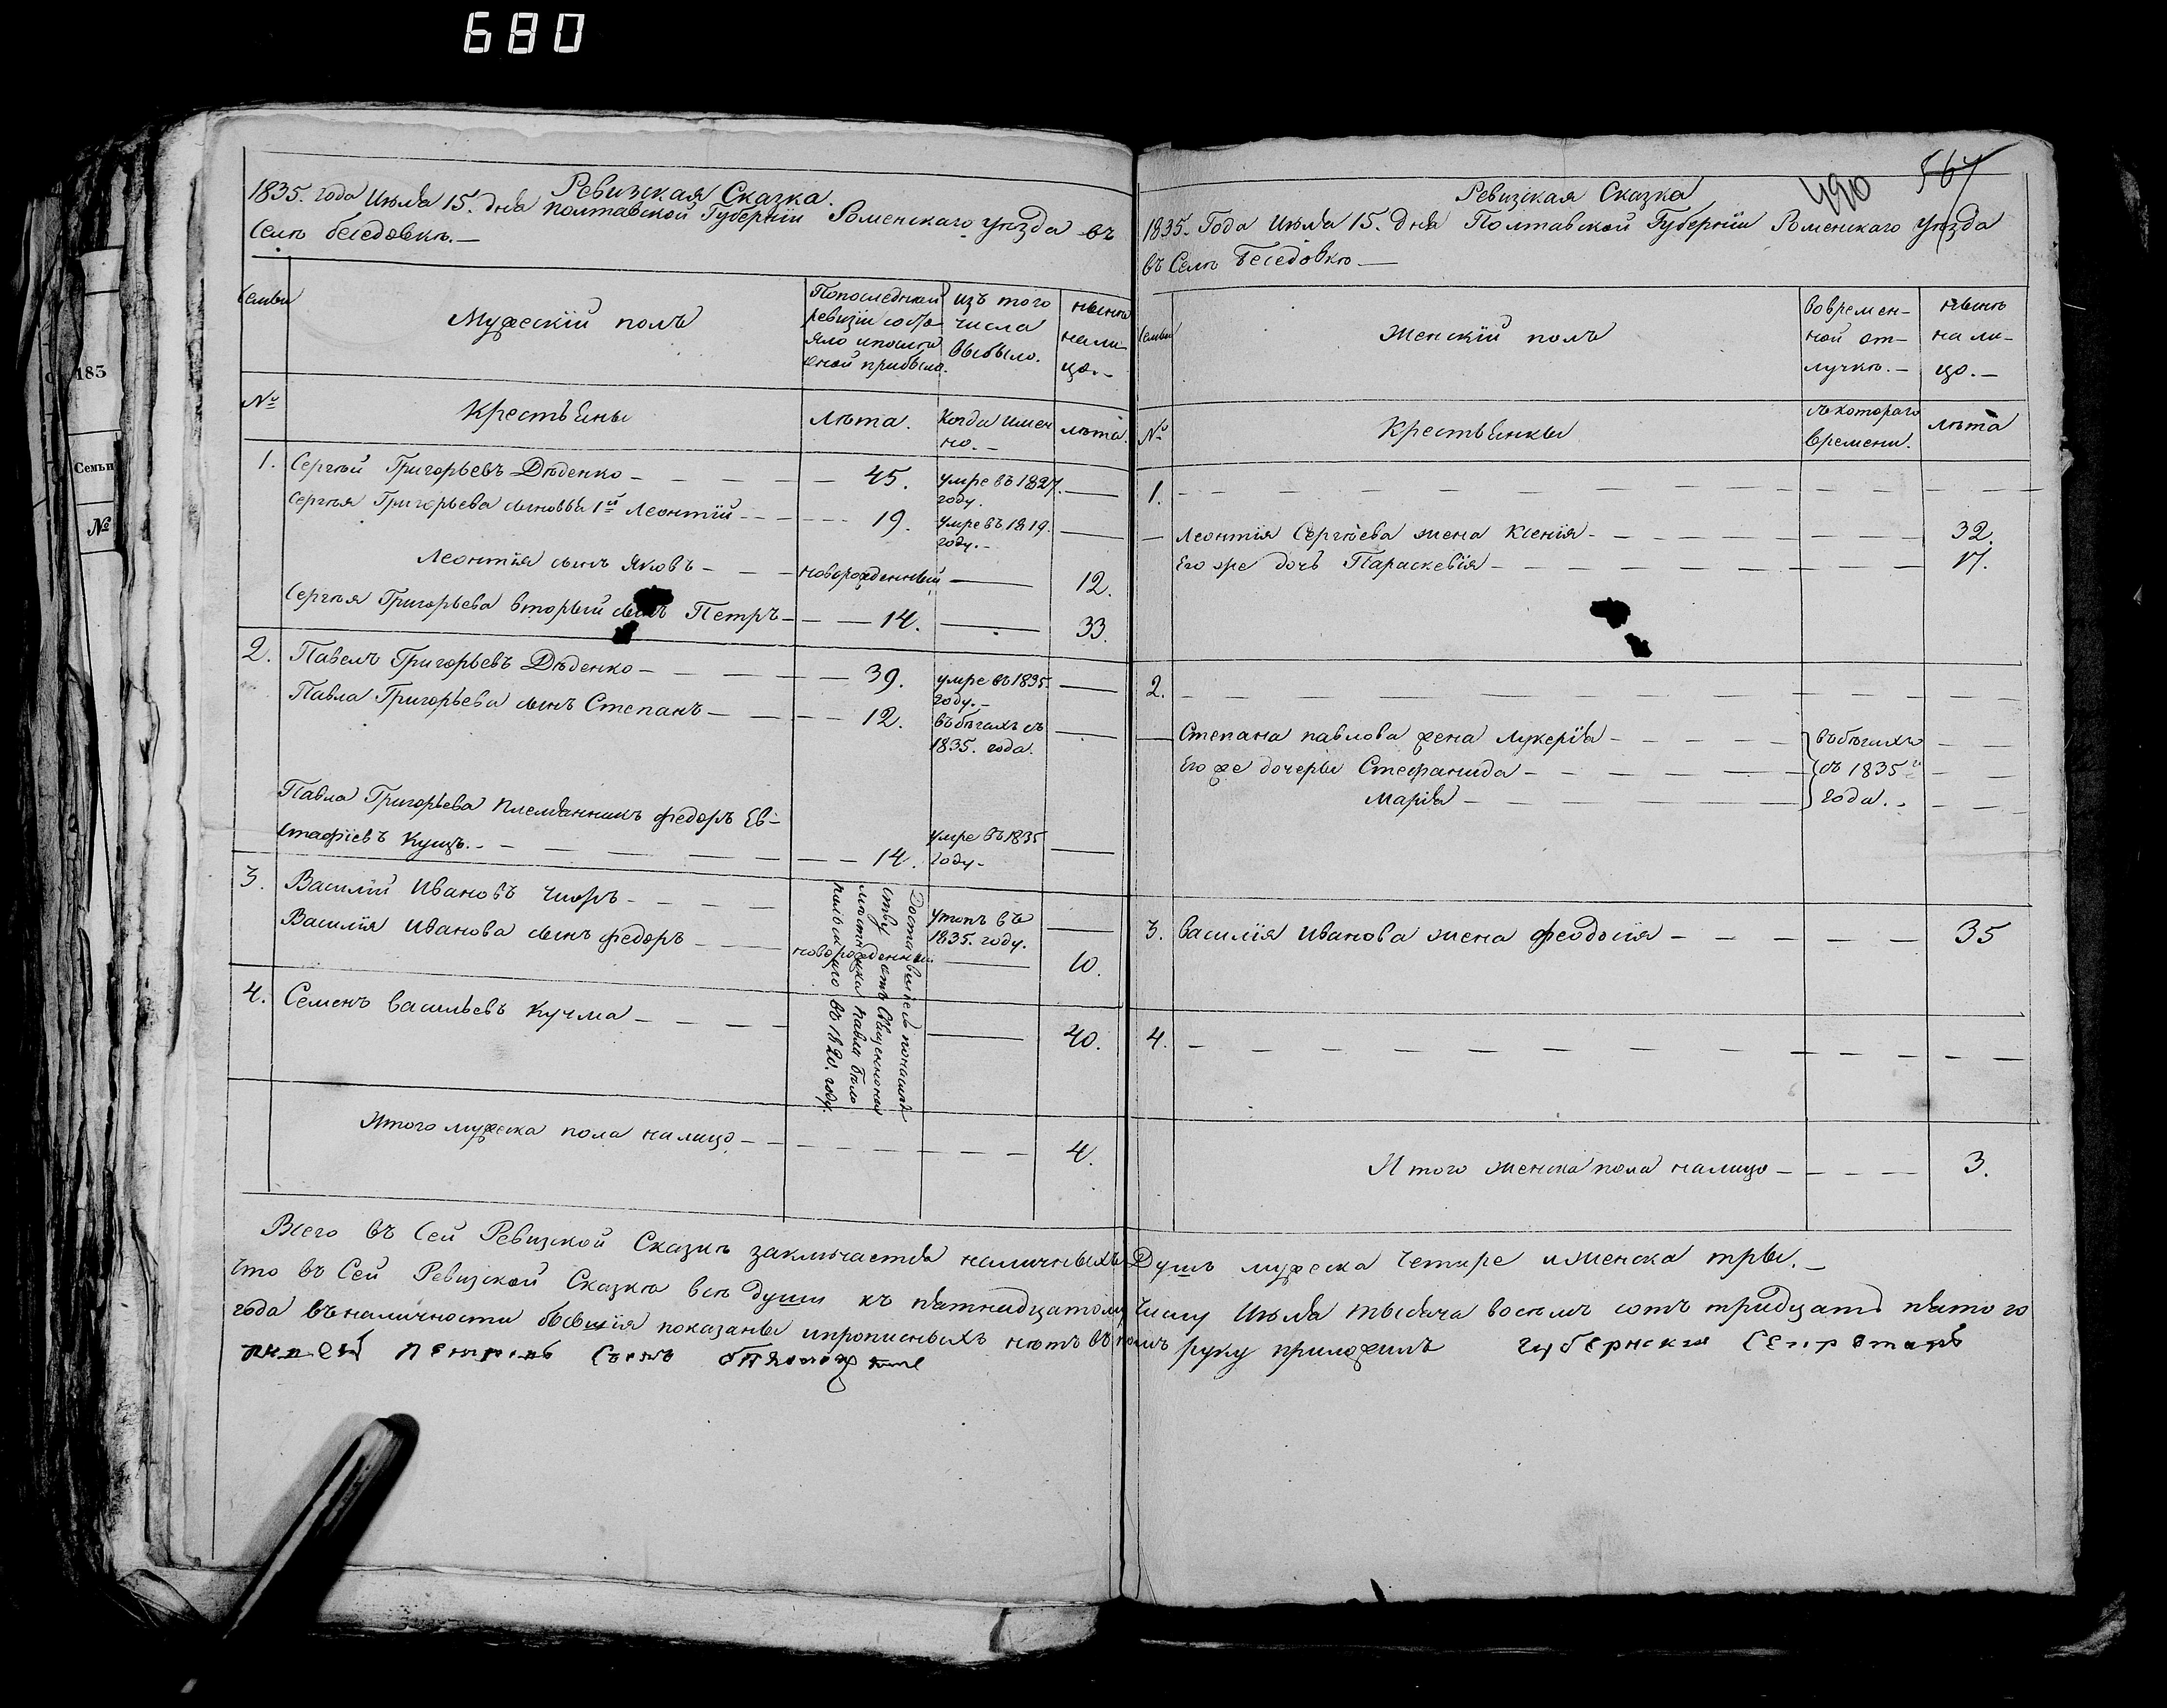 680
185
Семьи
№
Ревизская Сказка.
1835. года Июля 15. дня Полтавской Губерніи Роменскаго уѣзда въ
Селѣ беседовкѣ.—
Семьи
Мужескій полъ
Попоследней ревизіи состояло ипосле оной прибыло.
изъ того числа выбыло.
нынѣ налицо.—
№
Крестьяны
Лѣта.
Когда именно.—
лѣта.
1. Сергѣй Григорьевъ Дѣденко — 45. умре въ 1827. году.
Сергѣя Григорьева сыновья 1й Леонтій — 19. умре въ 1819. году.—
Леонтія сынъ Яковъ — новорожденный — 12.
Сергѣя Григорьева вторый сынъ Петръ — 14. — 33.
2. Павелъ Григорьевъ Дѣденко — 39. умре въ 1835. году.—
Павла Григорьева сынъ Степанъ — 12. въбѣгахъ съ 1835. года.
Павла Григорьева племянникъ федоръ Ев-
стафіевъ Куцъ.— 14. умре въ 1835 году.—
3. Василій Ивановъ — утопъ въ 1835. году.
Василія Иванова сынъ федоръ — новорожденный — 10.
4. Семенъ Васильевъ Кучма — 40.
въ 1820. году.
Итого мужеска пола налицо — 4.
490 567
Ревизская Сказка
1835. Года Июля 15. дня Полтавской Губерніи Роменскаго уѣзда
въ Селѣ Беседовкѣ —
Семьи
Женскій полъ
вовремен-
ной от-
лучкѣ.—
нынѣ
нали-
цо.—
№
Крестьянки
съкотораго
времени.
лѣта
1.
Леонтія Сергѣева жена Ксенія — 32.
Его же дочь Параскевія — 17.
2.
Степана павлова жена Лукерія — въбѣгахъ
Его же дочеры Стефанида — съ 1835го
Марія — года.
3. Василія Иванова жена феодосія — 35
4.
Итого женска пола налицо — 3.
Всего въ Сей Ревизской Сказкѣ заключается наличныхъ Душъ мужеска четыре иженска тры.—
Что въ Сей Ревизской Сказкѣ всѣ души къ пятнадцатому числу Июля тысяча восемъ сотъ тридцать пятого
года въналичности бывшія показаны ипрописныхъ нѣтъ въ томъ руку приложилъ губернский Секретарь